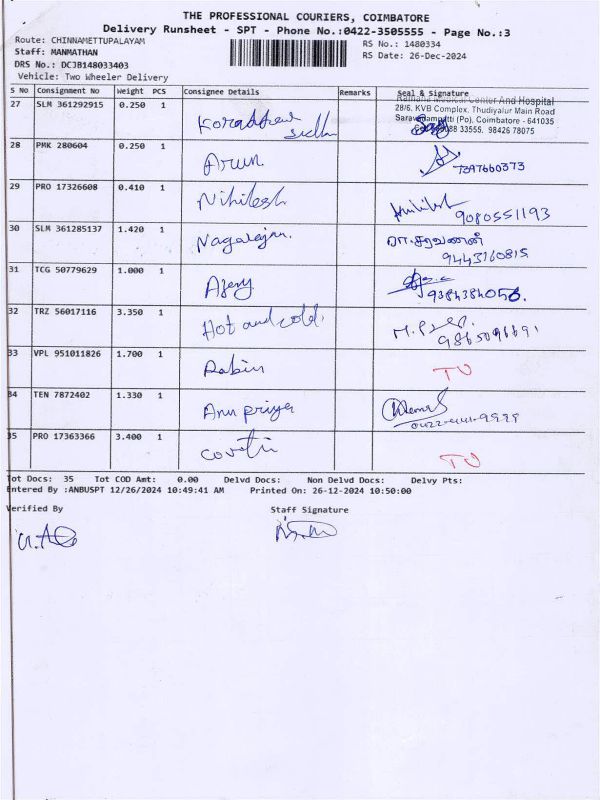 THE PROFESSIONAL COURIERS, COIMBATORE
Delivery Runsheet - SPT - Phone No.:0422-3505555 - Page No.:3
Route: CHINNAMETTUPALAYAM
RS No.: 1480334
Staff: MANMATHAN
RS Date: 26-Dec-2024
DRS No.: DCJB148033403
Vehicle: Two Wheeler Delivery
S No Consignment No Weight PCS Consignee Details Remarks Seal & Signature
27 SLM 361292915 0.250 1
Medical Center And Hospital
28/6, KVB Complex, Thudiyalur Main Road
(Po), Coimbatore - 641035
33555. 98426 78075
28 PMK 280604 0.250 1 Arun
7397660373
29 PRO 17326608 0.410 1 Nihilesh
9080551193
30 SLM 361285137 1.420 1 Nagarajan.
ரா.சரவணன்
9443160815
31 TCG 50779629 1.000 1 Ajery
9384384056.
32 TRZ 56017116 3.350 1 Hot and cold.
33 VPL 951011826 1.700 1 Rabin
TU
34 TEN 7872402 1.330 1 Anu priya
35 PRO 17363366 3.400 1
TU
Tot Docs: 35 Tot COD Amt: 0.00 Delvd Docs: Non Delvd Docs: Delvy Pts:
Entered By :ANBUSPT 12/26/2024 10:49:41 AM Printed On: 26-12-2024 10:50:00
Verified By Staff Signature